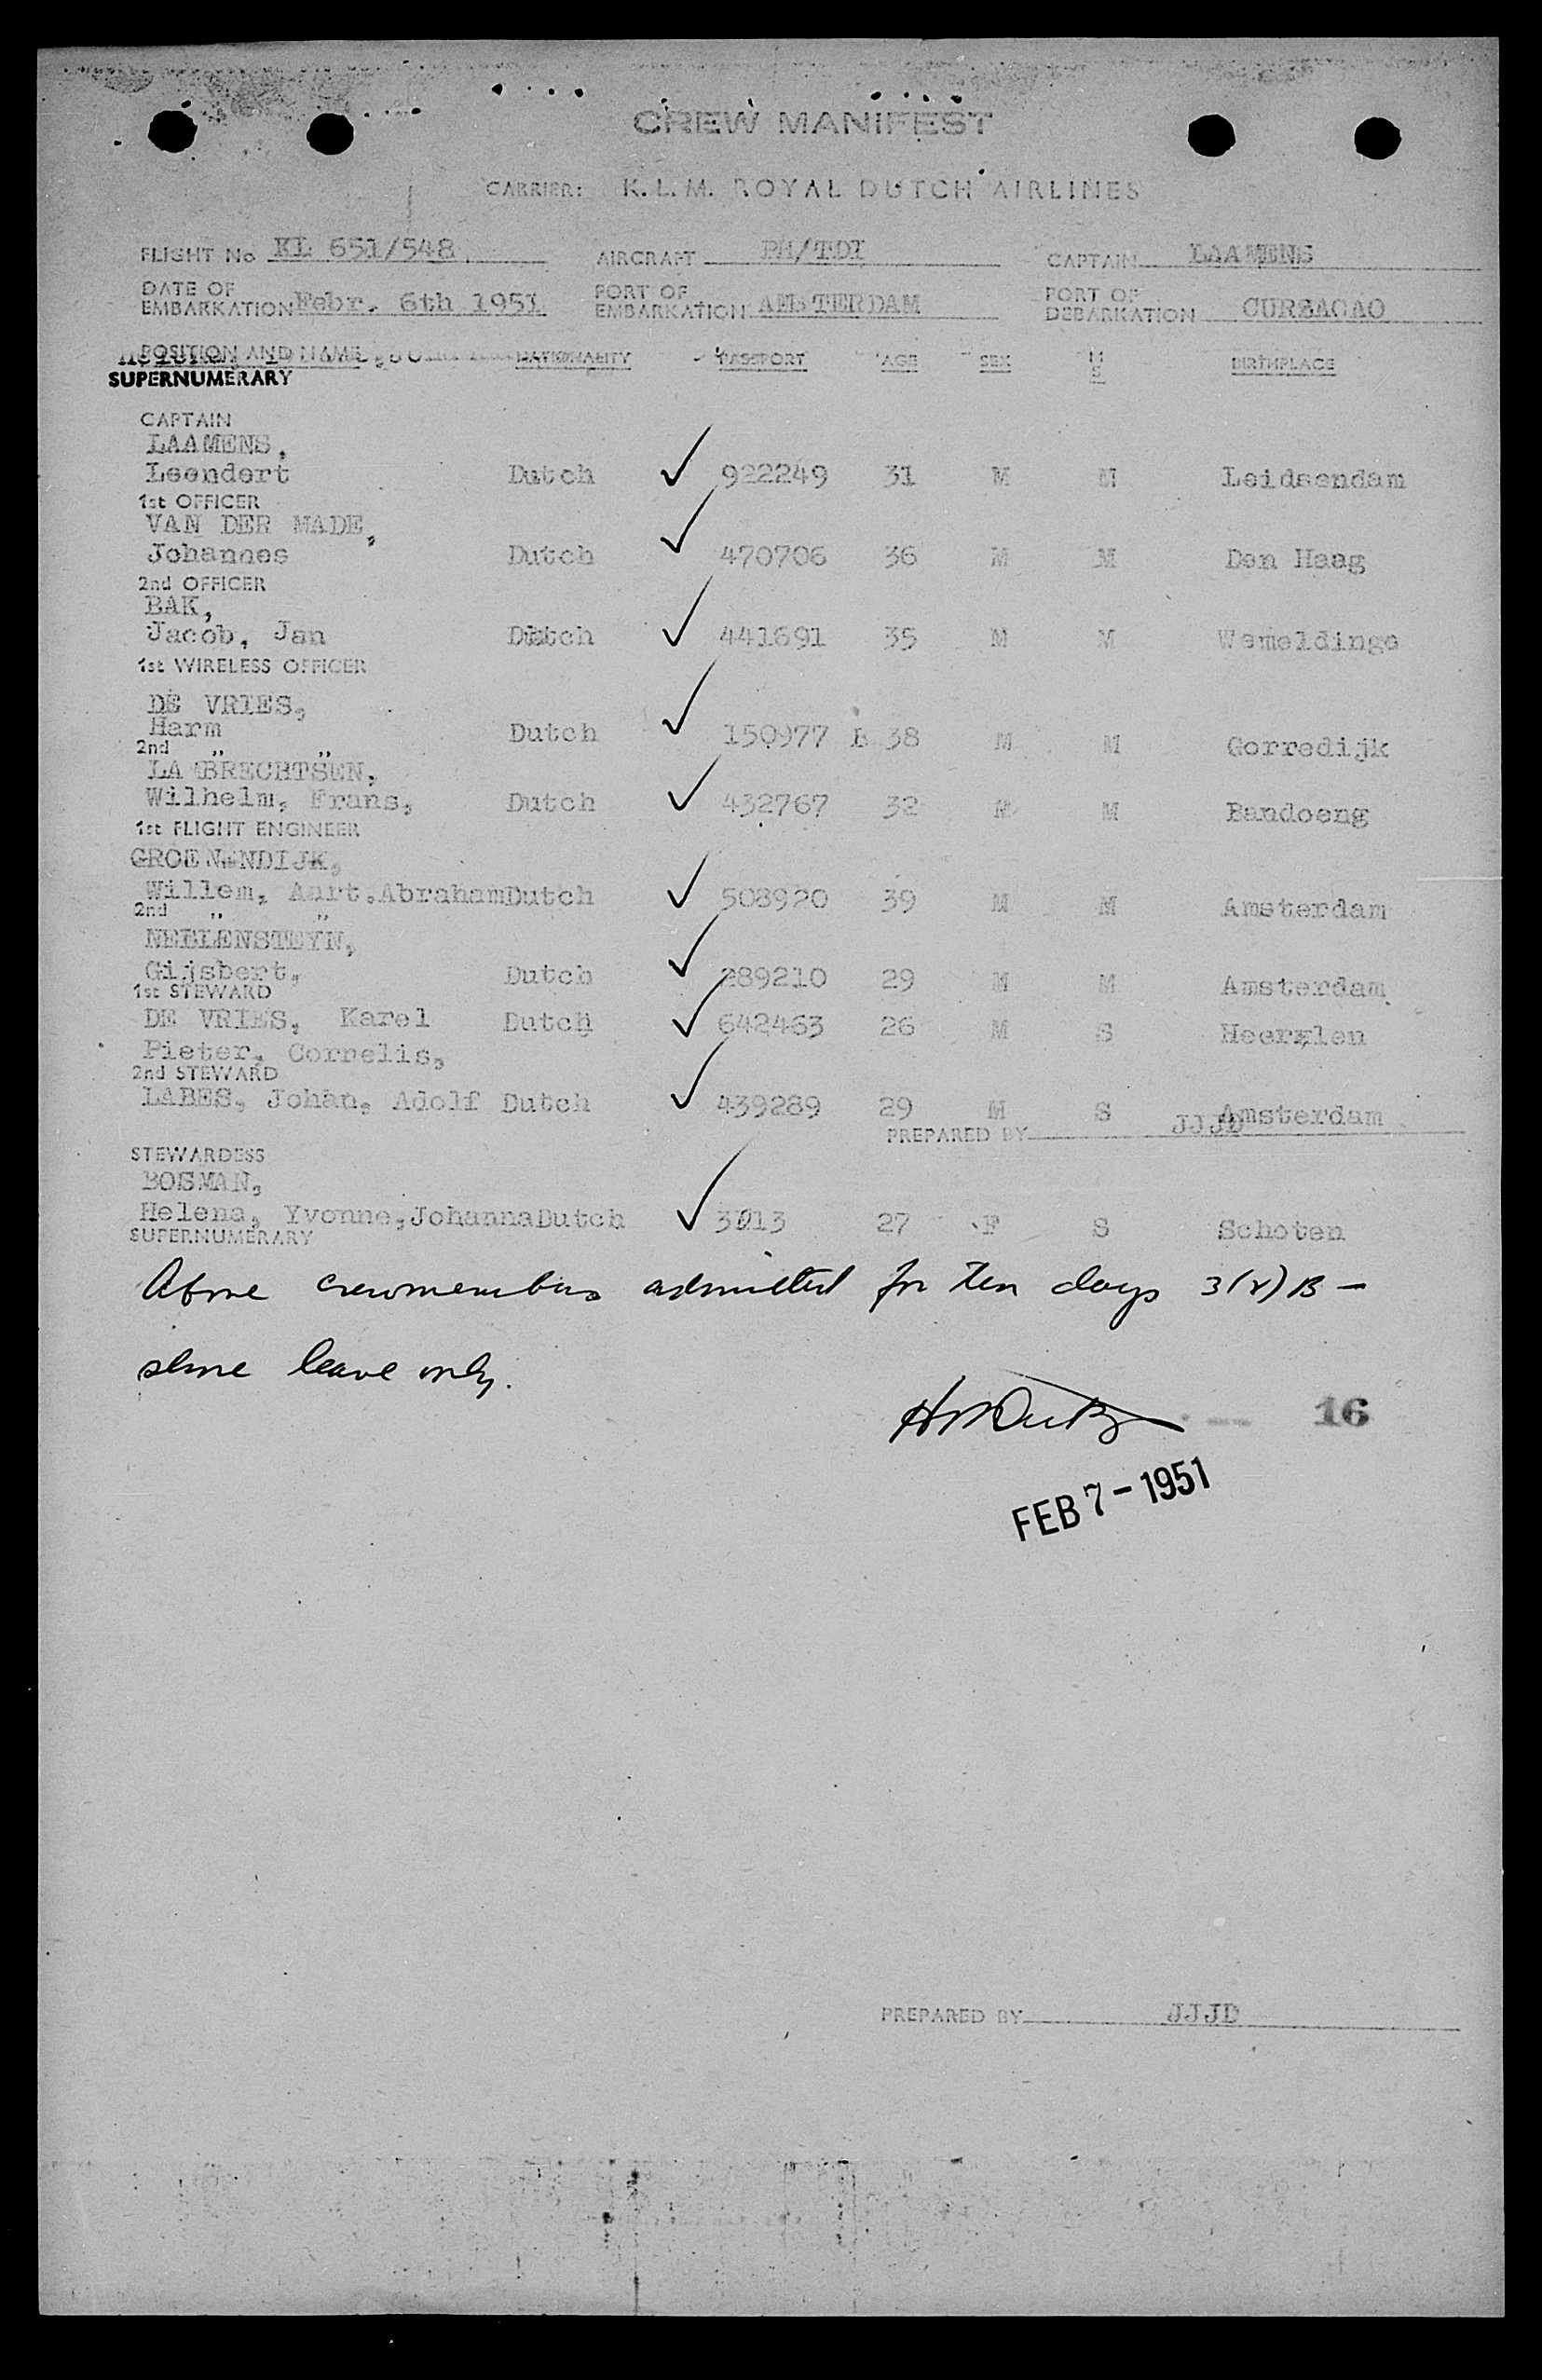 CREW MANIFEST
CARRIER: K. L. M. ROYAL DUTCH AIRLINES
FLIGHT No KL 651/548 AIRCRAFT PH/TDI CAPTAIN LAAMENS
DATE OF EMBARKATION Febr. 6th 1951 PORT OF EMBARKATION AMSTERDAM PORT OF DEBARKATION CURAACAO
POSITION AND NAME NATIONALITY PASSPORT AGE SEX M S BIRTHPLACE
SUPERNUMERARY
CAPTAIN
LAAMENS,
Leendert Dutch ✓ 922249 31 M M Leidsendam
1st OFFICER
VAN DER MADE,
Johannes Dutch ✓ 470706 36 M M Den Haag
2nd OFFICER
BAK,
Jacob, Jan Dutch ✓ 441691 35 M M Wemeldinge
1st WIRELESS OFFICER
DE VRIES,
Harm Dutch ✓ 150977 B 38 M M Gorredijk
2nd ,, ,,
LA BRECHTSEN,
Wilhelm, Frans, Dutch ✓ 432767 32 M M Bandoeng
1st FLIGHT ENGINEER
GROENENDIJK,
Willem, Aart.Abraham Dutch ✓ 508920 39 M M Amsterdam
2nd ,, ,,
NEELENSTEYN,
Gijsbert, Dutch ✓ 289210 29 M M Amsterdam
1st STEWARD
DE VRIES, Karel Dutch ✓ 642463 26 M S Heerlen
Pieter, Cornelis,
2nd STEWARD
LABES, Johan, Adolf Dutch ✓ 439289 29 M S Amsterdam
PREPARED BY JJJD
STEWARDESS
BOSMAN,
Helena, Yvonne,Johanna Dutch ✓ 3013 27 F S Schoten
SUPERNUMERARY
Above crewmembers admitted for ten days 3(r)B –
shore leave only.
16
FEB 7 - 1951
PREPARED BY JJJD